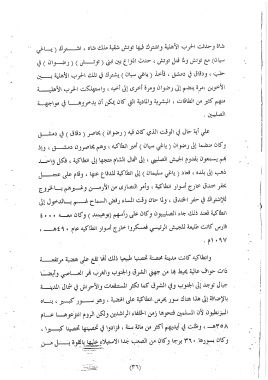 شاه وحدثت الحرب الأهلية واشترك فيها توتش شقيق ملك شاه ، اشترك (ياغي
سيان) مع توتش ولما قتل توتش ، حدث النزاع بين ابني (توتش) (رضوان) في
حلب ، ودقاق في دمشق ، فأخذ (ياغي سيان) يشترك في تلك الحرب الأهلية بين
الأخوين ، مرة ينضم إلى رضوان ومرة أخرى إلى أخيه ، واستهلكت الحرب الأهلية
منهم كثير من الطاقات ، البشرية والمادية التي كان يمكن أن يدخروها في مواجهة
الصليبين .
على أية حال في الوقت الذي كان فيه (رضوان) يحاصر (دقاق) في دمشق
وكان منضما إلى رضوان (ياغي سيان) أمير انطاكيه ، وهم يحاصرون دمشق ، وإذ
بهم يسمعون بقدوم الجيش الصليبي ، إلى شمال الشام متجها إلى انطاكية ، فكل واحد
ذهب إلى بلده ، فعاد (ياغي سليمان) إلى انطاكية للدفاع عنها ، وقام على عجل
بحفر خندق خارج أسوار انطاكية ، وأمر النصارى من الأرمن وغيرهم بالخروج
للاشتراك في حفر الخندق ، ولما حان وقت المساء رفض السماح لهم بالدخول إلى
انطاكية فعند ذلك جاء الصليبيون وكان على رأسهم (بوهيمند) وكان معه ٤٠٠٠
فارس كانت طليعة للجيش الرئيسي فعسكروا خارج أسوار انطاكيه عام ٤٩٠هـ -
١٠٩٧م .
وانطاكيه كانت مدينة محصنة تحصينا طبيعيا ذلك أنها تقع على هضبة مرتفعة
ذات حواف عالية يحيط بها من جهتي الشرق والجنوب والغرب نهر العاصي وأيضا
جبال توجد إلى الجنوب وفي الشرق كما تكثر المستنقعات والأحراش في شمال المدينة
بالإضافة إلى هذا هناك سور يحرس انطاكية على الهضبة ، وهو سور كبير ، بناه
البيزنطيون لأن المسلمين فتحوها زمن الخلفاء الراشدين ولكن الروم انتزعوها عام
٣٥٨هـ ، وظلت في أيديهم أكثر من مائة سنة ، فزادوا في تحصينها تحصينا كبيرا ،
وكان بسورها ٣٩٠ برجا وكان من الصعب جدا الاستيلاء عليها بالقوة بل من
(٣٦)